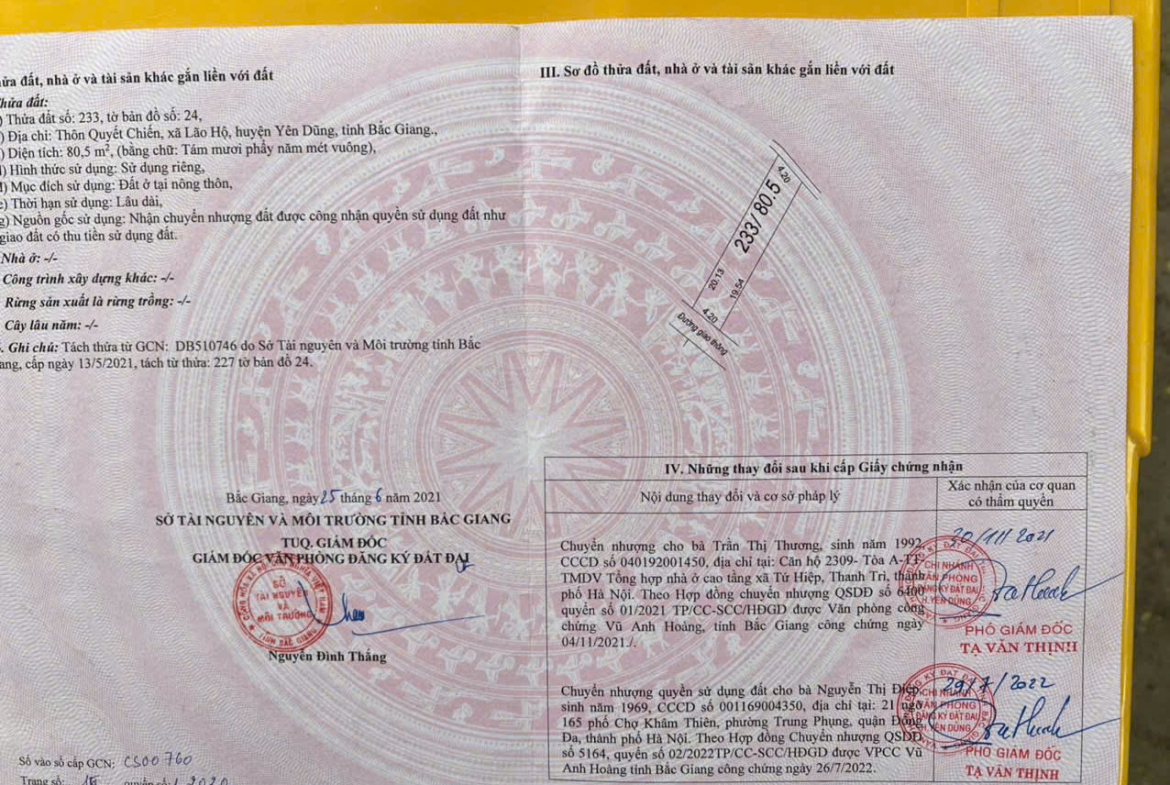 ửa đất, nhà ở và tài sản khác gắn liền với đất
hửa đất:
) Thửa đất số: 233, tờ bản đồ số: 24,
) Địa chỉ: Thôn Quyết Chiến, xã Lão Hộ, huyện Yên Dũng, tỉnh Bắc Giang.,
) Diện tích: 80,5 m², (bằng chữ: Tám mươi phẩy năm mét vuông),
) Hình thức sử dụng: Sử dụng riêng,
) Mục đích sử dụng: Đất ở tại nông thôn,
) Thời hạn sử dụng: Lâu dài,
g) Nguồn gốc sử dụng: Nhận chuyển nhượng đất được công nhận quyền sử dụng đất như
giao đất có thu tiền sử dụng đất.
Nhà ở: -/-
Công trình xây dựng khác: -/-
Rừng sản xuất là rừng trồng: -/-
Cây lâu năm: -/-
. Ghi chú: Tách thửa từ GCN: DB510746 do Sở Tài nguyên và Môi trường tỉnh Bắc
ang, cấp ngày 13/5/2021, tách từ thửa: 227 tờ bản đồ 24.
Bắc Giang, ngày 25 tháng 6 năm 2021
SỞ TÀI NGUYÊN VÀ MÔI TRƯỜNG TỈNH BẮC GIANG
TUQ. GIÁM ĐỐC
GIÁM ĐỐC VĂN PHÒNG ĐĂNG KÝ ĐẤT ĐAI
SỞ
TÀI NGUYÊN
VÀ
MÔI TRƯỜNG
TỈNH BẮC GIANG
Nguyễn Đình Thắng
Số vào sổ cấp GCN: CS00760
Trang số: 18 quyển số: 1 2020
III. Sơ đồ thửa đất, nhà ở và tài sản khác gắn liền với đất
4.20
233/ 80.5
20.13
19.54
4.20
Đường giao thông
IV. Những thay đổi sau khi cấp Giấy chứng nhận
Nội dung thay đổi và cơ sở pháp lý
Xác nhận của cơ quan
có thẩm quyền
Chuyển nhượng cho bà Trần Thị Thương, sinh năm 1992
CCCD số 040192001450, địa chỉ tại: Căn hộ 2309- Tòa A-TT
TMDV Tổng hợp nhà ở cao tầng xã Tứ Hiệp, Thanh Trì, thành
phố Hà Nội. Theo Hợp đồng chuyển nhượng QSDĐ số 6400
quyển số 01/2021 TP/CC-SCC/HĐGD được Văn phòng công
chứng Vũ Anh Hoàng, tỉnh Bắc Giang công chứng ngày
04/11/2021./.
30/11/2021
CHI NHÁNH
VĂN PHÒNG
ĐĂNG KÝ ĐẤT ĐAI
H. YÊN DŨNG
PHÓ GIÁM ĐỐC
TẠ VĂN THỊNH
Chuyển nhượng quyền sử dụng đất cho bà Nguyễn Thị Điệp,
sinh năm 1969, CCCD số 001169004350, địa chỉ tại: 21 ngõ
165 phố Chợ Khâm Thiên, phường Trung Phụng, quận Đống
Đa, thành phố Hà Nội. Theo Hợp đồng Chuyển nhượng QSDĐ
số 5164, quyển số 02/2022TP/CC-SCC/HĐGD được VPCC Vũ
Anh Hoàng tỉnh Bắc Giang công chứng ngày 26/7/2022.
29/7/2022
CHI NHÁNH
VĂN PHÒNG
ĐĂNG KÝ ĐẤT ĐAI
H. YÊN DŨNG
PHÓ GIÁM ĐỐC
TẠ VĂN THỊNH